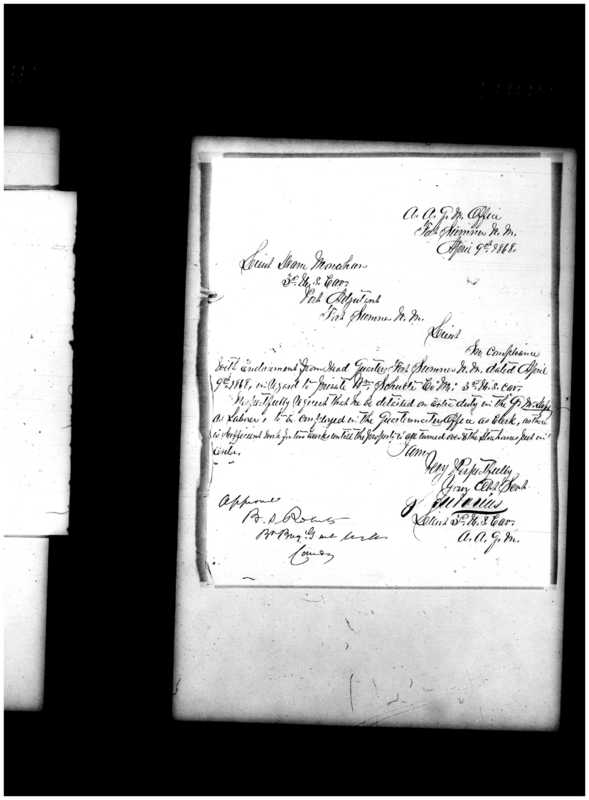 A. A. Q. M. Office
Fort Sumner N. M.
April 9th 1868.
Lieut Deane Monahan
3d U. S. Cav.
Post Adjutant
Fort Sumner N. M.
Lieut
In Compliance
with Endorsement from Head Quarters Fort Sumner N. M. dated April
9th 1868, in regard to Private Wm Schultz Co "M" 3d U. S. Cav.
I respectfully request that he be detailed on Extra duty in the Q. M. Dept
as Laborer & to be employed in the Quartermasters Office as Clerk, as there
is sufficient work for two Clerks until the property is all turned over & the Storehouses put in
order.
I am
Very Respectfully
Your Obt Servt
Lieut 3d U. S. Cav.
A. A. Q. M.
Approved
B. S. Roberts
Bt Brig. Genl
Comdg